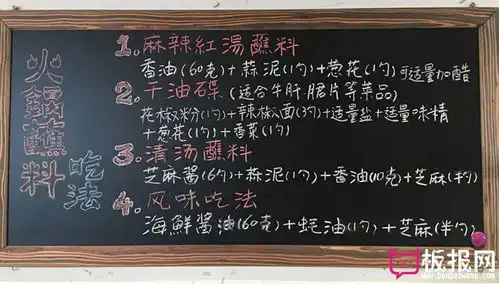 火鍋蘸料
吃法
1.麻辣紅湯蘸料
香油(60克)+蒜泥(1勺)+葱花(1勺)可适量加醋
2.干油碟(适合牛肝 䐃片等菜品)
花椒粉(1勺)+辣椒面(3勺)+适量盐+适量味精
+葱花(1勺)+香菜(1勺)
3.清汤蘸料
芝麻酱(6勺)+蒜泥(1勺)+香油(10克)+芝麻(半勺)
4.风味吃法
海鮮醬油(60克)+蚝油(1勺)+芝麻(半勺)
板报网
www.banbaowang.com